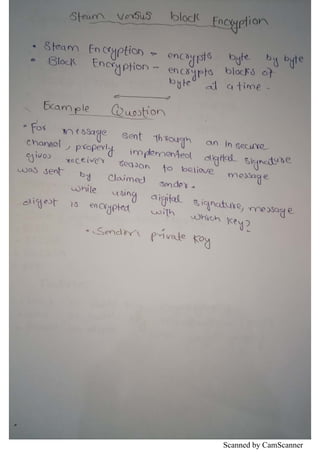 Steam versus block Encryption
• Steam Encryption - encrypts byte by byte
• Block Encryption - encrypts blocks of
byte at a time.
Example Question
• For message sent through an Insecure
channel, properly implemented digital signature
gives receiver reason to believe message
was sent by claimed sender.
while using digital signature, message
digest is encrypted with which key?
• Senders private key
Scanned by CamScanner